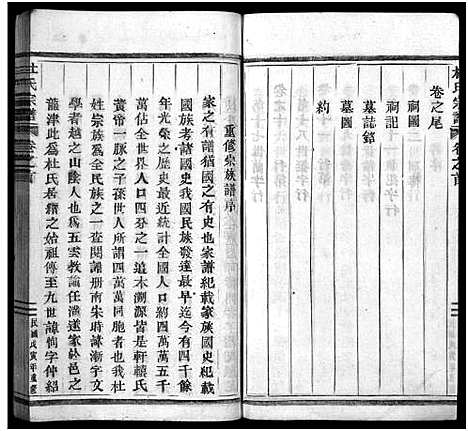 杜氏宗譜
卷之首
卷之尾
祠圖
祠記
墓誌銘
墓圖
約
杜氏宗譜
卷之首
民國戊寅年重修
重修宗族譜序
家之有譜猶國之有史也家譜紀載家族國史紀載
國族考諸國史我國民族發達最早迄今有四千餘
年光榮之歷史據最近統計人口約四萬萬五千
萬佔全世界人口四分之一追本溯源皆是軒轅氏
黃帝一脈之子孫世人所謂四萬萬同胞者也我杜
姓宗族為全民族之一查閱譜册南宋時諱漸字文
學者越之山陰人也為五雲教諭任滿遂家於邑之
龍津此為杜氏居縉之始祖傳至九世諱恂字仲紹